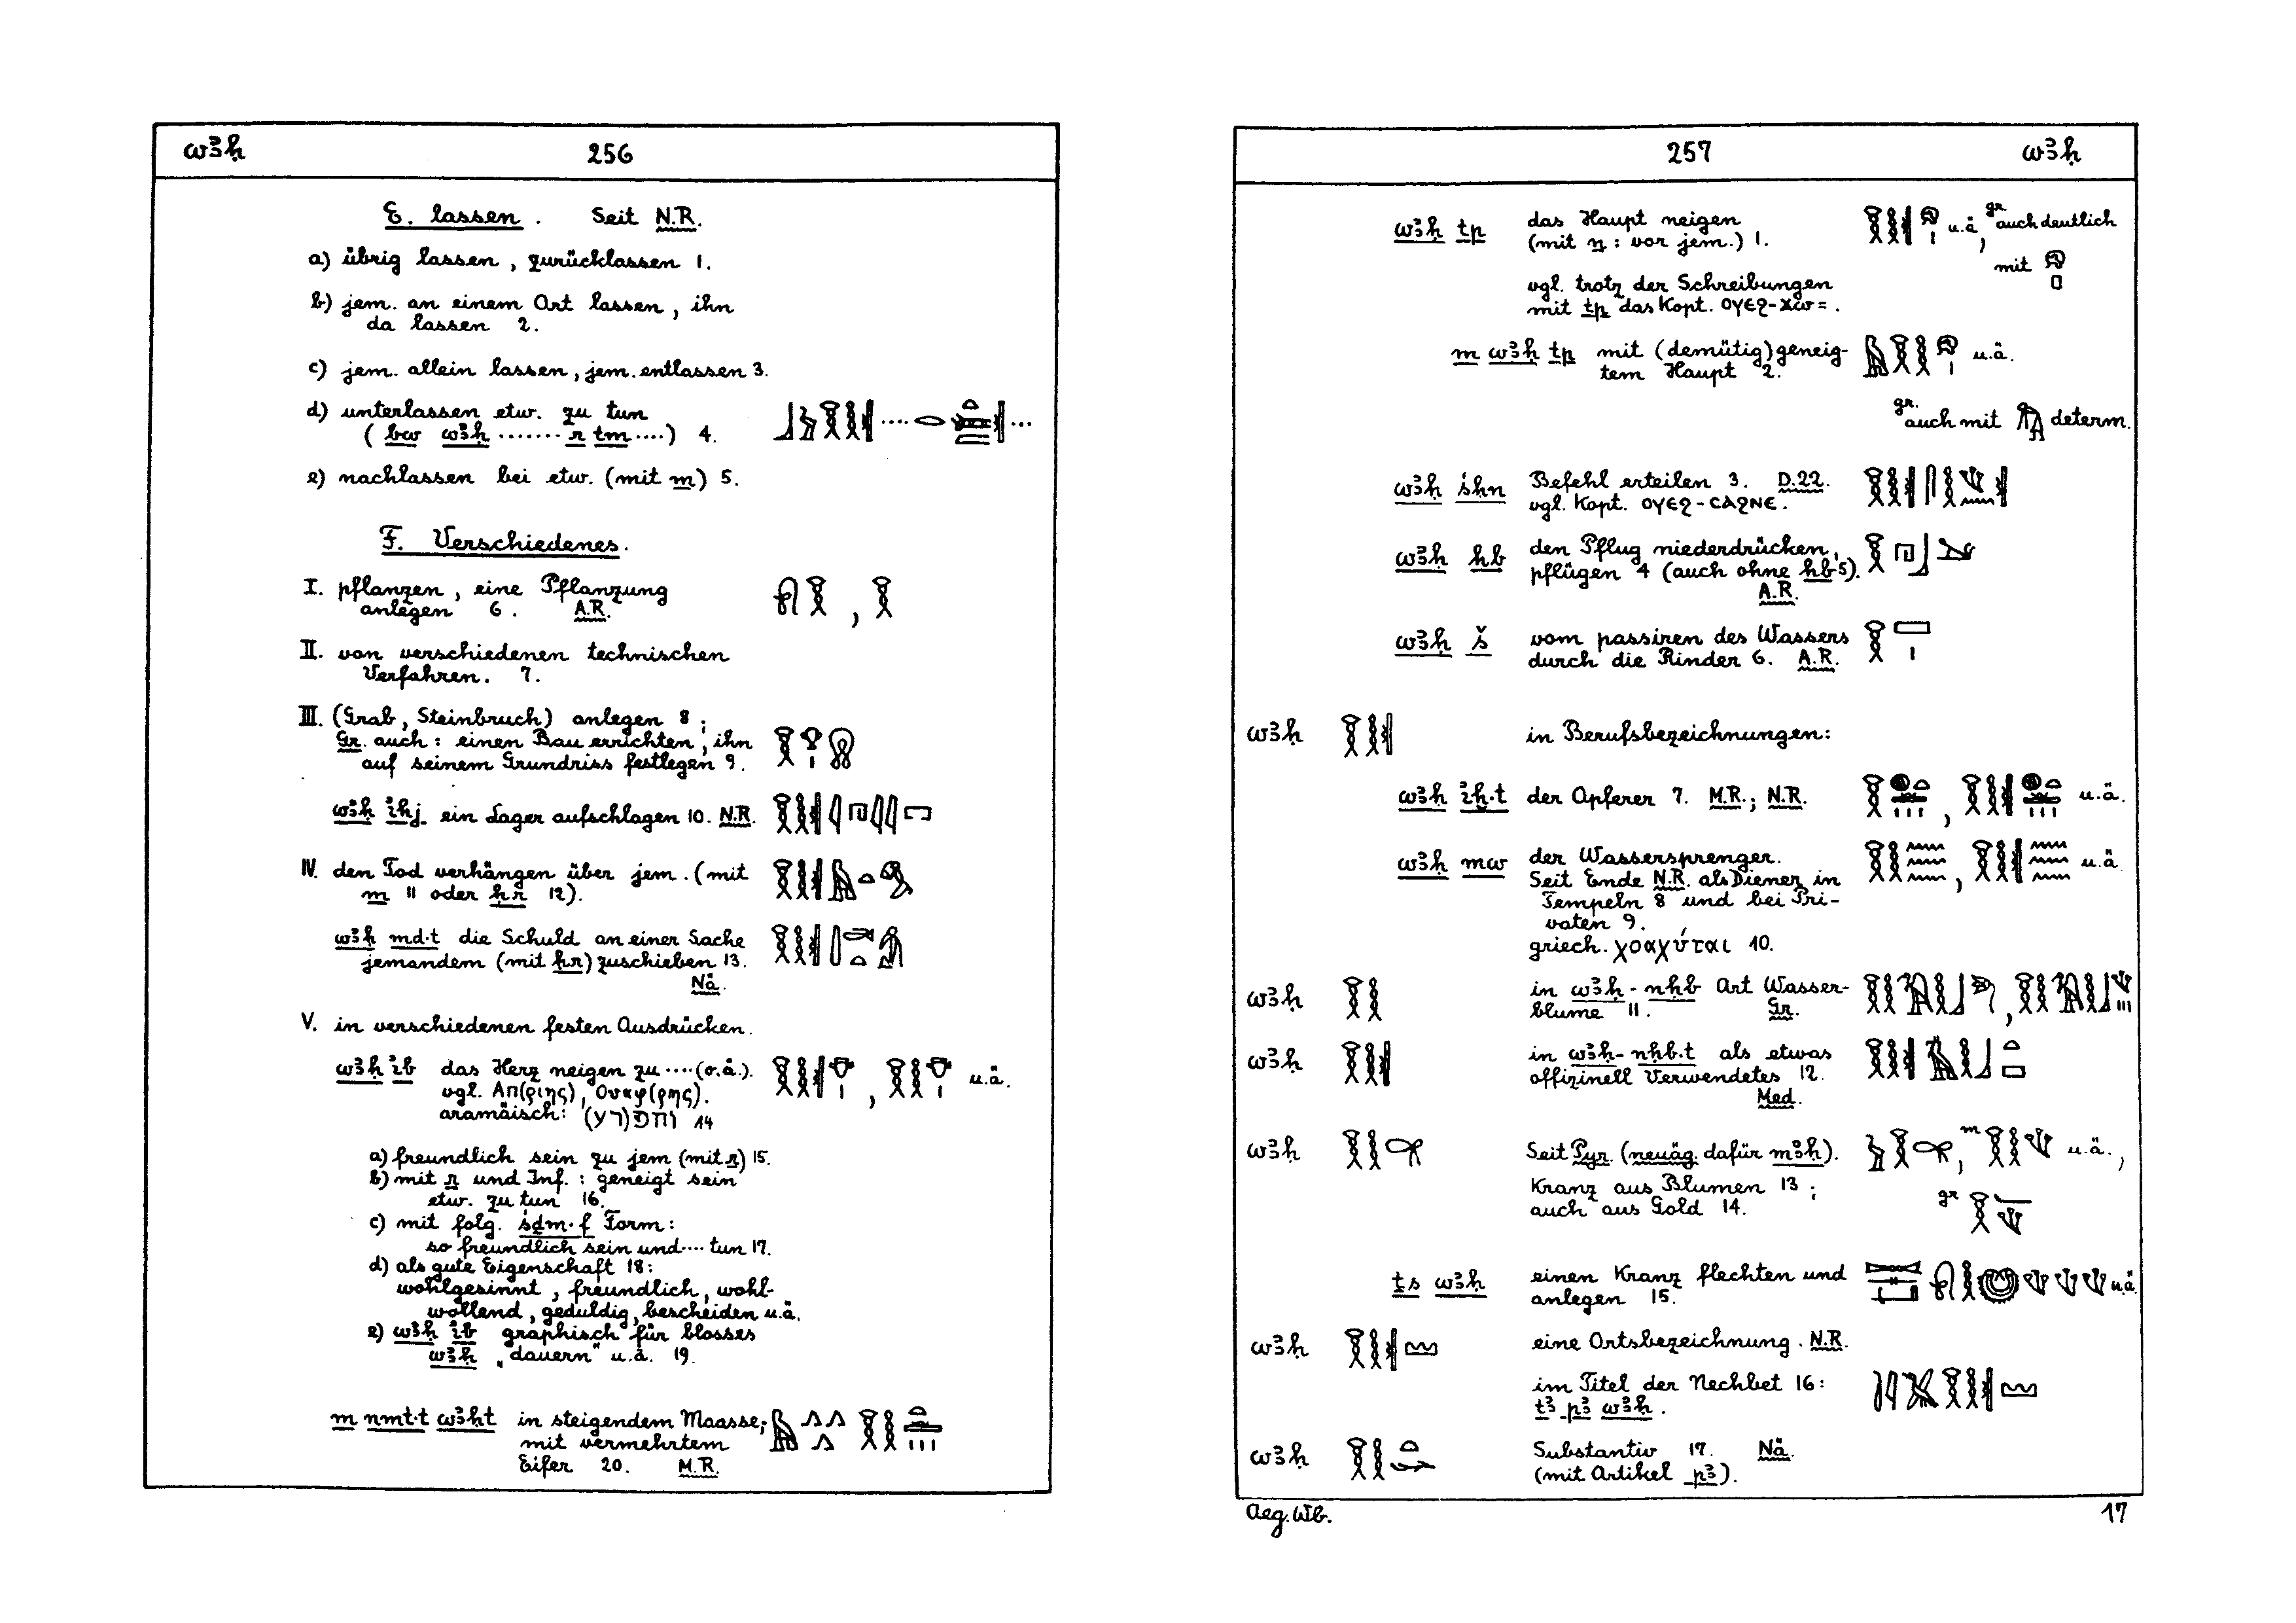 wꜣḥ 256
E. lassen. Seit N.R.
a) übrig lassen, zurücklassen 1.
b) jem. an einem Ort lassen, ihn
da lassen 2.
c) jem. allein lassen, jem. entlassen 3.
d) unterlassen etw. zu tun
(bw wꜣḥ ....... r tm ....) 4.
e) nachlassen bei etw. (mit m) 5.
F. Verschiedenes.
I. pflanzen, eine Pflanzung
anlegen 6. A.R.
II. von verschiedenen technischen
Verfahren. 7.
III. (Grab, Steinbruch) anlegen 8;
Gr. auch: einen Bau errichten, ihn
auf seinem Grundriss festlegen 9.
wꜣḥ ı͗hj ein Lager aufschlagen 10. N.R.
IV. den Tod verhängen über jem. (mit
m 11 oder ḥr 12).
wꜣḥ md·t die Schuld an einer Sache
jemandem (mit ḥr) zuschieben 13.
Nä.
V. in verschiedenen festen Ausdrücken.
wꜣḥ ı͗b das Herz neigen zu .... (o.ä.). u.ä.
vgl. Απ(ριης), Ουαφ(ρης).
aramäisch: וחפ(רע) 14
a) freundlich sein zu jem (mit n) 15.
b) mit r und Inf.: geneigt sein
etw. zu tun 16.
c) mit folg. śḏm·f Form:
so freundlich sein und .... tun 17.
d) als gute Eigenschaft 18:
wohlgesinnt, freundlich, wohl-
wollend, geduldig, bescheiden u.ä.
e) wꜣḥ ı͗b graphisch für blosses
wꜣḥ „dauern" u.ä. 19.
m nmt·t wꜣḥt in steigendem Maasse;
mit vermehrtem
Eifer 20. M.R.
257 wꜣḥ
wꜣḥ tp das Haupt neigen u.ä., gr. auch deutlich
(mit n: vor jem.) 1. mit
vgl. trotz der Schreibungen
mit tp das Kopt. ⲟⲩⲉϩ-ϫⲱ=.
m wꜣḥ tp mit (demütig) geneig- u.ä.
tem Haupt 2.
gr. auch mit determ.
wꜣḥ śḥn Befehl erteilen 3. D.22.
vgl. Kopt. ⲟⲩⲉϩ-ⲥⲁϩⲛⲉ.
wꜣḥ hb den Pflug niederdrücken,
pflügen 4 (auch ohne hb 5).
A.R.
wꜣḥ š vom passiren des Wassers
durch die Rinder 6. A.R.
wꜣḥ in Berufsbezeichnungen:
wꜣḥ ı͗ḫ·t der Opferer 7. M.R.; N.R. u.ä.
wꜣḥ mw der Wassersprenger. u.ä.
Seit Ende N.R. als Diener in
Tempeln 8 und bei Pri-
vaten 9.
griech. χοαχύται 10.
wꜣḥ in wꜣḥ-nḥb Art Wasser-
blume 11. Gr.
wꜣḥ in wꜣḥ-nḥb·t als etwas
offizinell Verwendetes 12.
Med.
wꜣḥ Seit Pyr. (neuäg. dafür mꜣḥ). u.ä.,
Kranz aus Blumen 13;
auch aus Gold 14. gr
ṯs wꜣḥ einen Kranz flechten und u.ä.
anlegen 15.
wꜣḥ eine Ortsbezeichnung. N.R.
im Titel der Nechbet 16:
tꜣ pꜣ wꜣḥ.
wꜣḥ Substantiv 17. Nä.
(mit Artikel pꜣ).
Aeg. Wb. 17